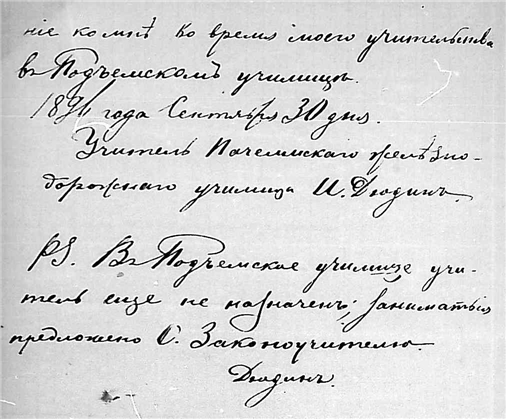 ніе комнѣ во время моего учительства
въ Подъемскомъ училищѣ.
1896 года Сентября 30 дня.
Учитель Пачелмскаго желѣзно-
дорожнаго училища И. Дюдинъ.
PS. Въ Подъемское училище учи-
тель еще не назначенъ; заниматься
предложено О. Законоучителю.
Дюдинъ.